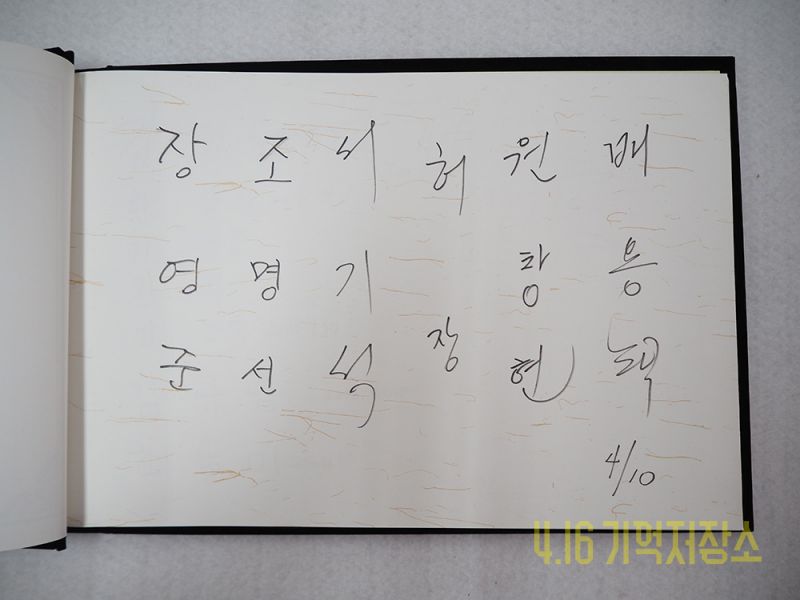 장영준
조명선
서기석
허장
원창현
배용택
4/10
4.16 기억저장소